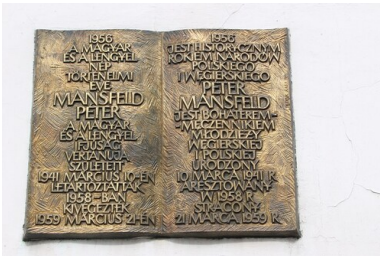 1956
A MAGYAR
ÉS A LENGYEL
NÉP
TÖRTÉNELMI
ÉVE
MANSFELD
PÉTER
A MAGYAR
ÉS A LENGYEL
IFJÚSÁG
VÉRTANÚJA
SZÜLETETT
1941 MÁRCIUS 10-ÉN
LETARTÓZTATTÁK
1958-BAN
KIVÉGEZTÉK
1959 MÁRCIUS 21-ÉN
1956
JEST HISTORYCZNYM
ROKIEM NARODÓW
POLSKIEGO
I WĘGIERSKIEGO
PETER
MANSFELD
JEST BOHATEREM-
-MĘCZENNIKIEM
MŁODZIEŻY
WĘGIERSKIEJ
I POLSKIEJ
URODZONY
10 MARCA 1941 R.
ARESZTOWANY
W 1958 R.
STRACONY
21 MARCA 1959 R.